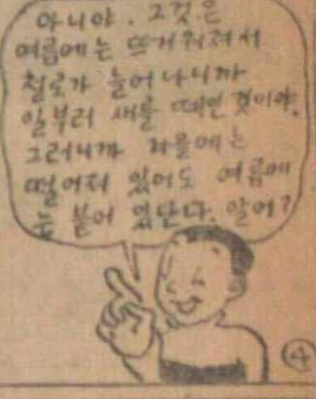 아니야. 그것은
여름에는 뜨거워져서
철로가 늘어나니까
일부러 새를 떼인 것이야.
그러니까 겨울에는
떨어져 있어도 여름에
는 붙어 있단다. 알어?
④